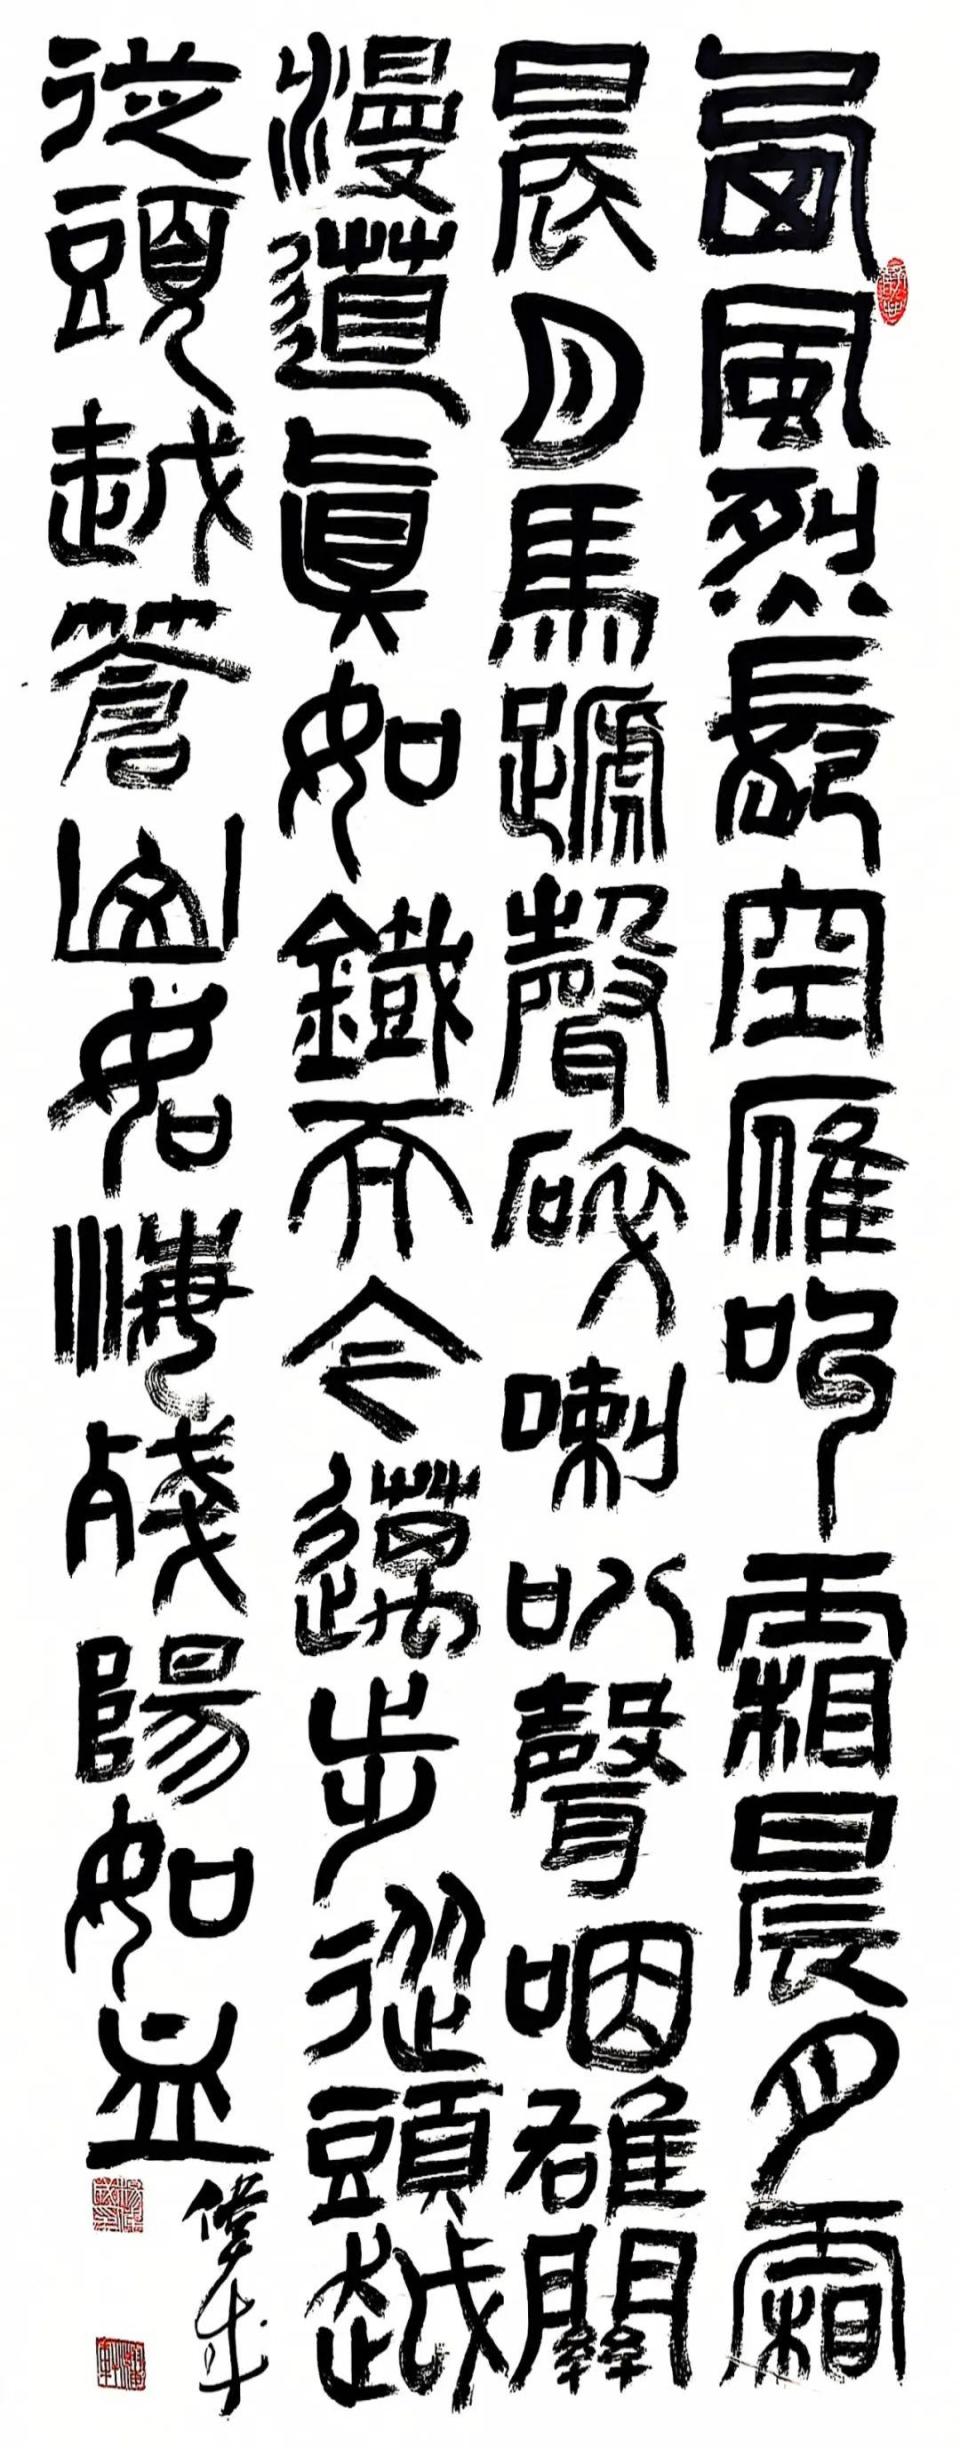 西風烈長空雁叫霜晨月霜
晨月馬蹏聲碎喇叭聲咽雄關
漫道眞如鐵而今邁步從頭越
從頭越蒼山如海殘陽如血